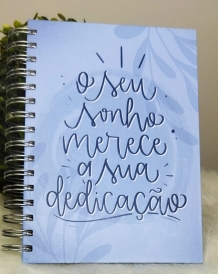 o seu
sonho
merece
a sua
dedicação